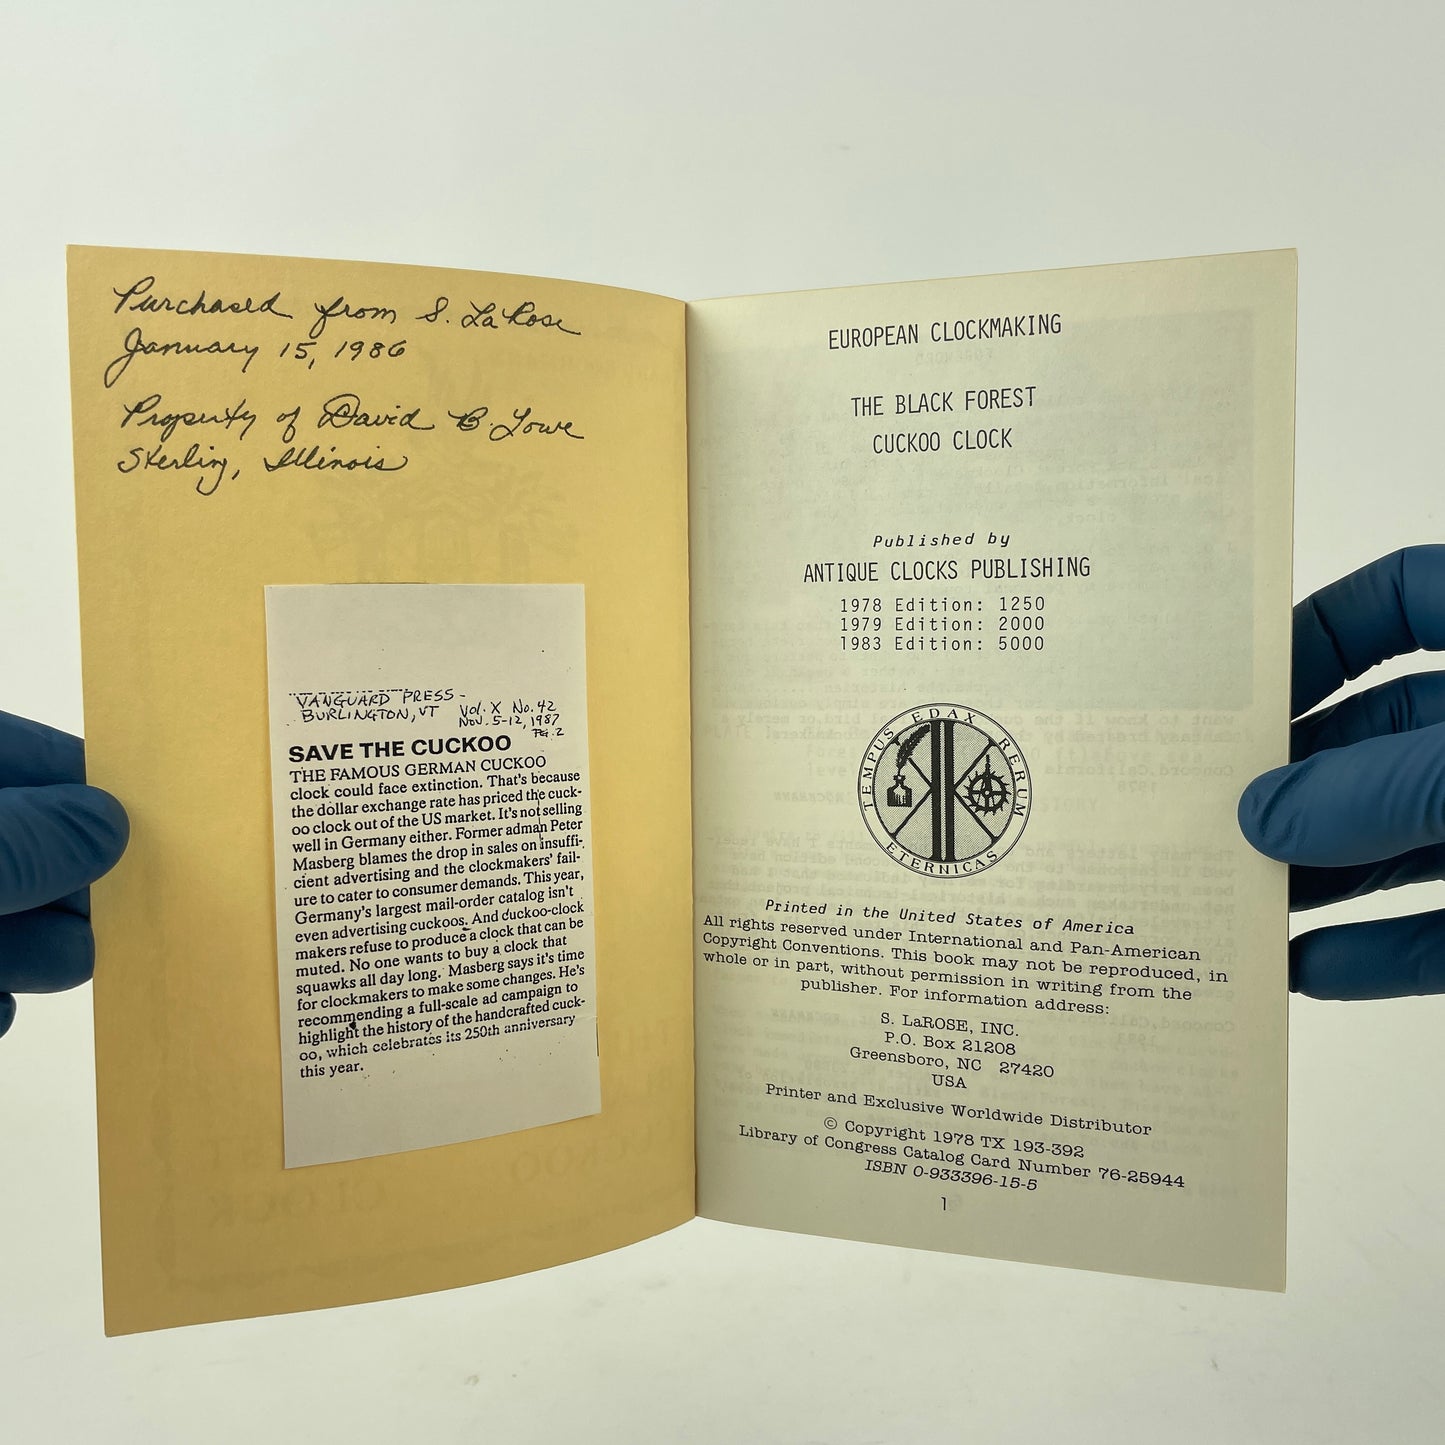 Purchased from S. LaRose
January 15, 1986
Property of David B. Lowe
Sterling, Illinois
VANGUARD PRESS -
BURLINGTON, VT
Vol. X No. 42
NOV. 5-12, 1987
PG. 2
SAVE THE CUCKOO
THE FAMOUS GERMAN CUCKOO
clock could face extinction. That's because
the dollar exchange rate has priced the cuck-
oo clock out of the US market. It's not selling
well in Germany either. Former adman Peter
Masberg blames the drop in sales on insuffi-
cient advertising and the clockmakers' fail-
ure to cater to consumer demands. This year,
Germany's largest mail-order catalog isn't
even advertising cuckoos. And cuckoo-clock
makers refuse to produce a clock that can be
muted. No one wants to buy a clock that
squawks all day long. Masberg says it's time
for clockmakers to make some changes. He's
recommending a full-scale ad campaign to
highlight the history of the handcrafted cuck-
oo, which celebrates its 250th anniversary
this year.
EUROPEAN CLOCKMAKING
THE BLACK FOREST
CUCKOO CLOCK
Published by
ANTIQUE CLOCKS PUBLISHING
1978 Edition: 1250
1979 Edition: 2000
1983 Edition: 5000
TEMPUS EDAX RERUM
ETERNICAS
Printed in the United States of America
All rights reserved under International and Pan-American
Copyright Conventions. This book may not be reproduced, in
whole or in part, without permission in writing from the
publisher. For information address:
S. LaROSE, INC.
P.O. Box 21208
Greensboro, NC 27420
USA
Printer and Exclusive Worldwide Distributor
© Copyright 1978 TX 193-392
Library of Congress Catalog Card Number 76-25944
ISBN 0-933396-15-5
1